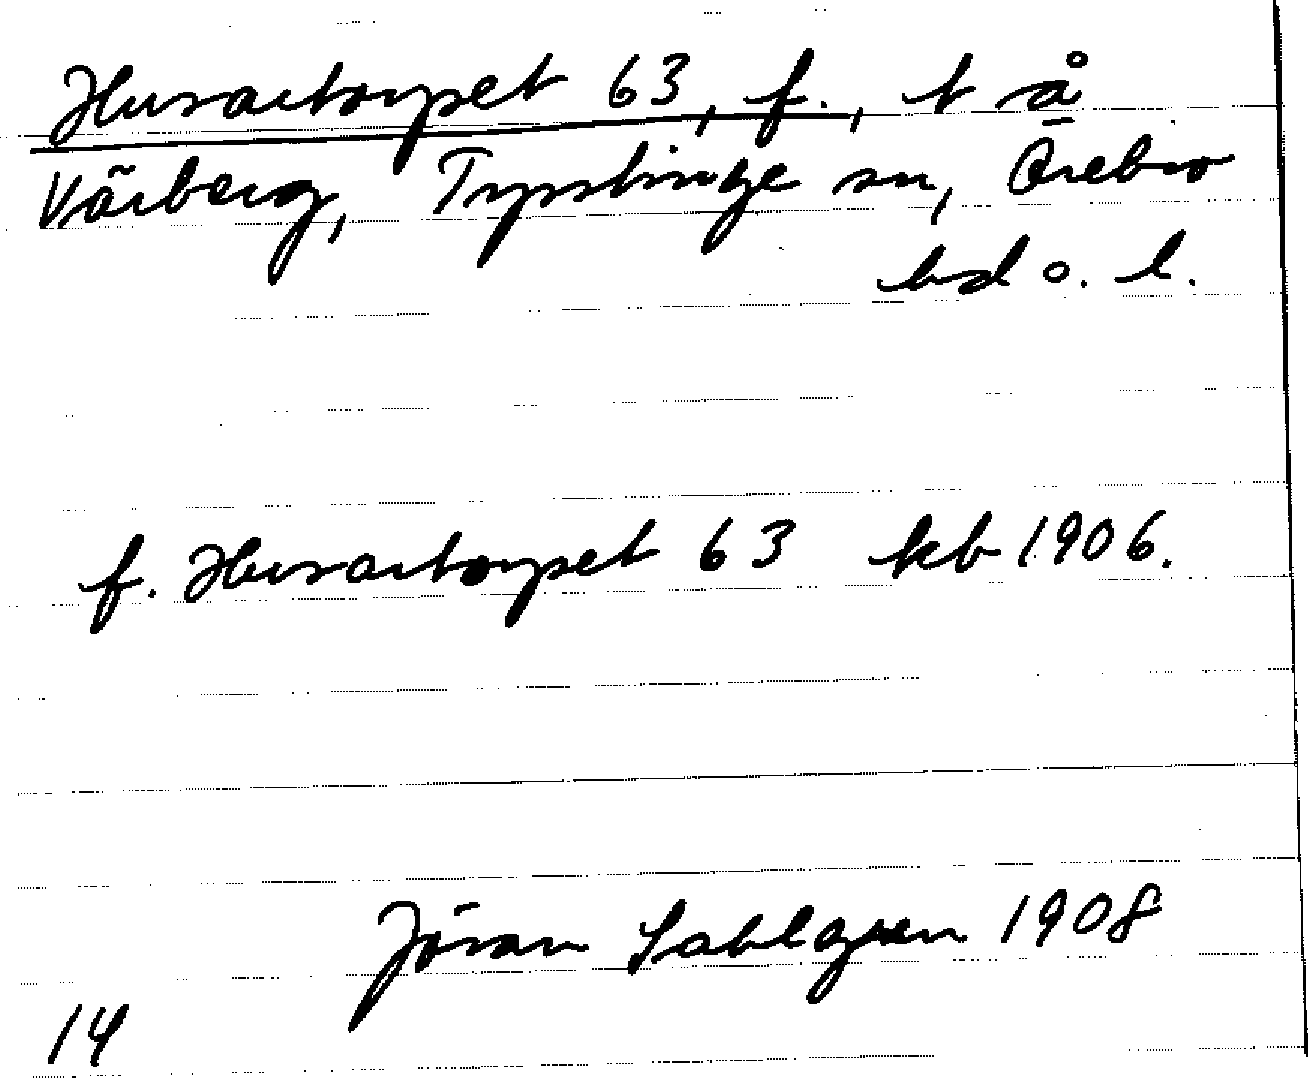 Husartorpet 63, f., t å
Vårberg, Tysslinge sn, Örebro
hd o. l.
f. Husartorpet 63 kb 1906.
Jöran Sahlgren 1908
14